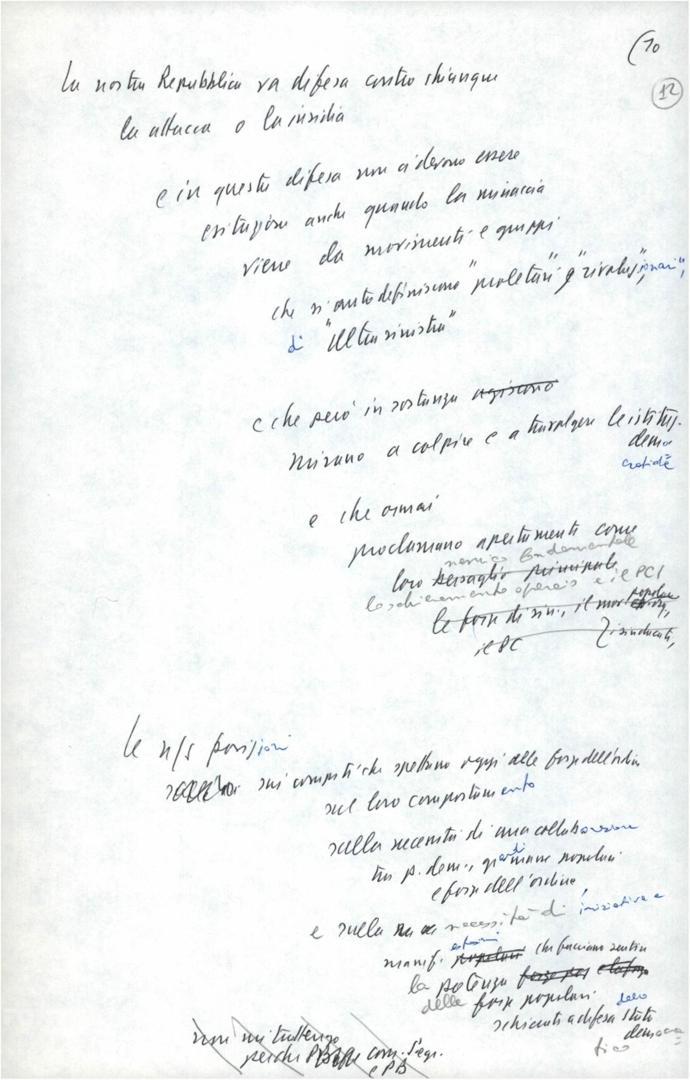 (10
12
La nostra Repubblica va difesa contro chiunque
la attacca o la insidia
e in questa difesa non ci devono essere
esitazioni anche quando la minaccia
viene da movimenti e gruppi
che si autodefiniscono "proletari" e "rivoluzionari",
di "ultrasinistra"
e che però in sostanza agiscono
mirano a colpire e a travolgere le istituz.
democratiche
e che ormai
proclamano apertamente come
nemico fondamentale
loro bersaglio principale
lo schieramento operaio e il PCI
le forze di sin., il mov. popolare
il PC i sindacati,
Le n/s posizioni
sui compiti che spettano oggi alle forze dell'ordine
sul loro comportamento
sulla necessità di una collaborazione
tra p. dem., grandi masse popolari
e forze dell'ordine,
e sulla necessità di iniziative e
manifestazioni popolari che facciano sentire
la potenza
delle forze popolari
schierate a difesa dello Stato
democratico
non mi trattengo
perché com. Segr.
e PB